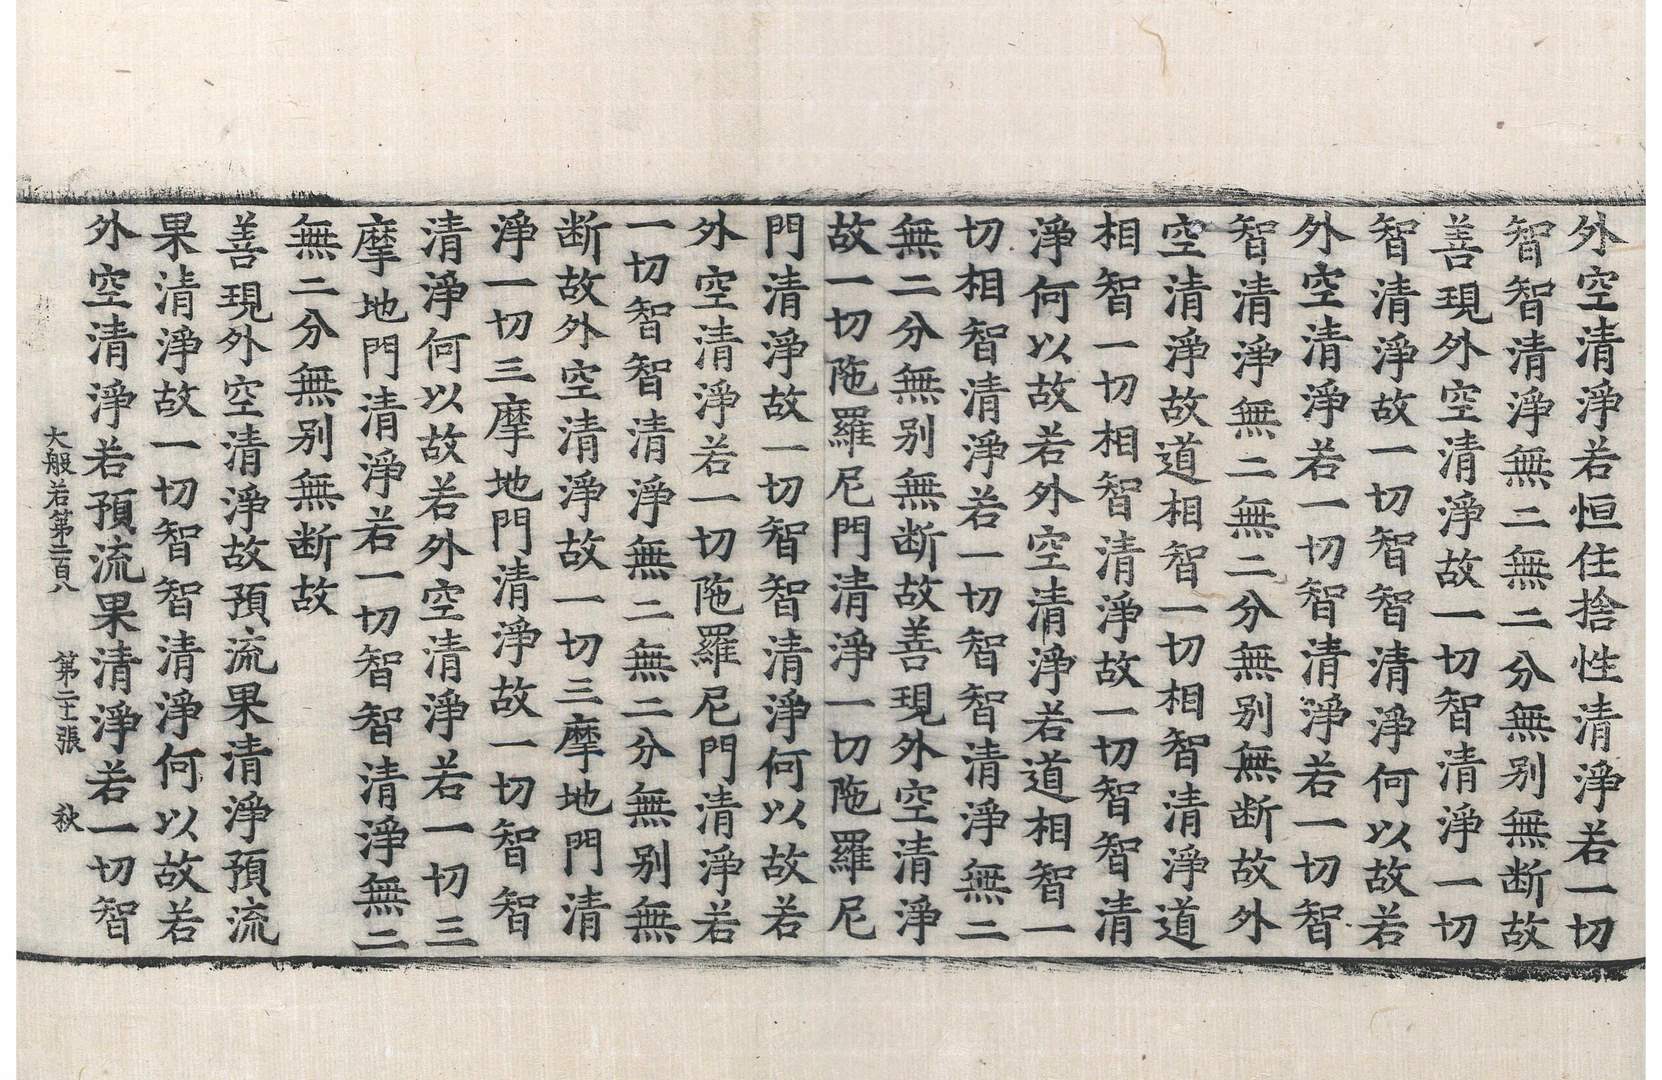 外空清淨若恒住捨性清淨若一切
智智清淨無二無二分無别無断故
善現外空清淨故一切智清淨一切
智清淨故一切智智清淨何以故若
外空清淨若一切智清淨若一切智
智清淨無二無二分無别無断故外
空清淨故道相智一切相智清淨道
相智一切相智清淨故一切智智清
淨何以故若外空清淨若道相智一
切相智清淨若一切智智清淨無二
無二分無别無断故善現外空清淨
故一切陁羅尼門清淨一切陁羅尼
門清淨故一切智智清淨何以故若
外空清淨若一切陁羅尼門清淨若
一切智智清淨無二無二分無别無
断故外空清淨故一切三摩地門清
淨一切三摩地門清淨故一切智智
清淨何以故若外空清淨若一切三
摩地門清淨若一切智智清淨無二
無二分無别無断故
善現外空清淨故預流果清淨預流
果清淨故一切智智清淨何以故若
外空清淨若預流果清淨若一切智
大般若第二百八 第 張 秋